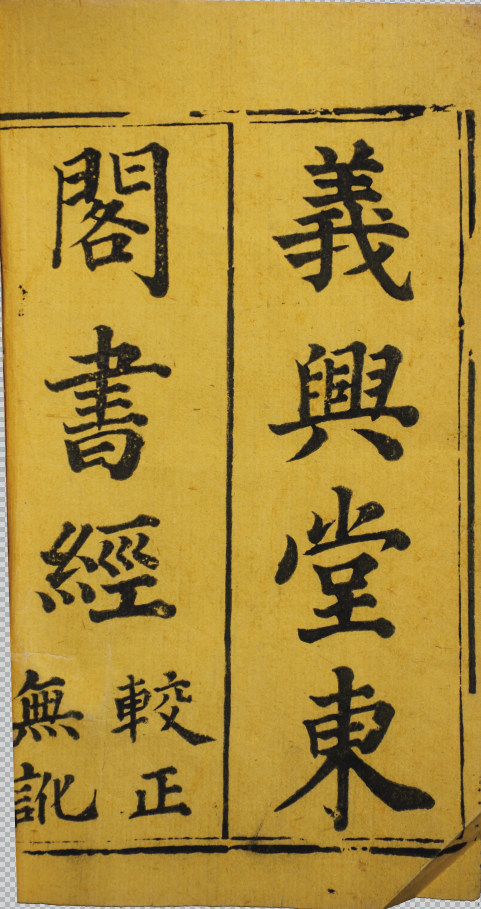 義興堂東
閣書經
較正
無訛